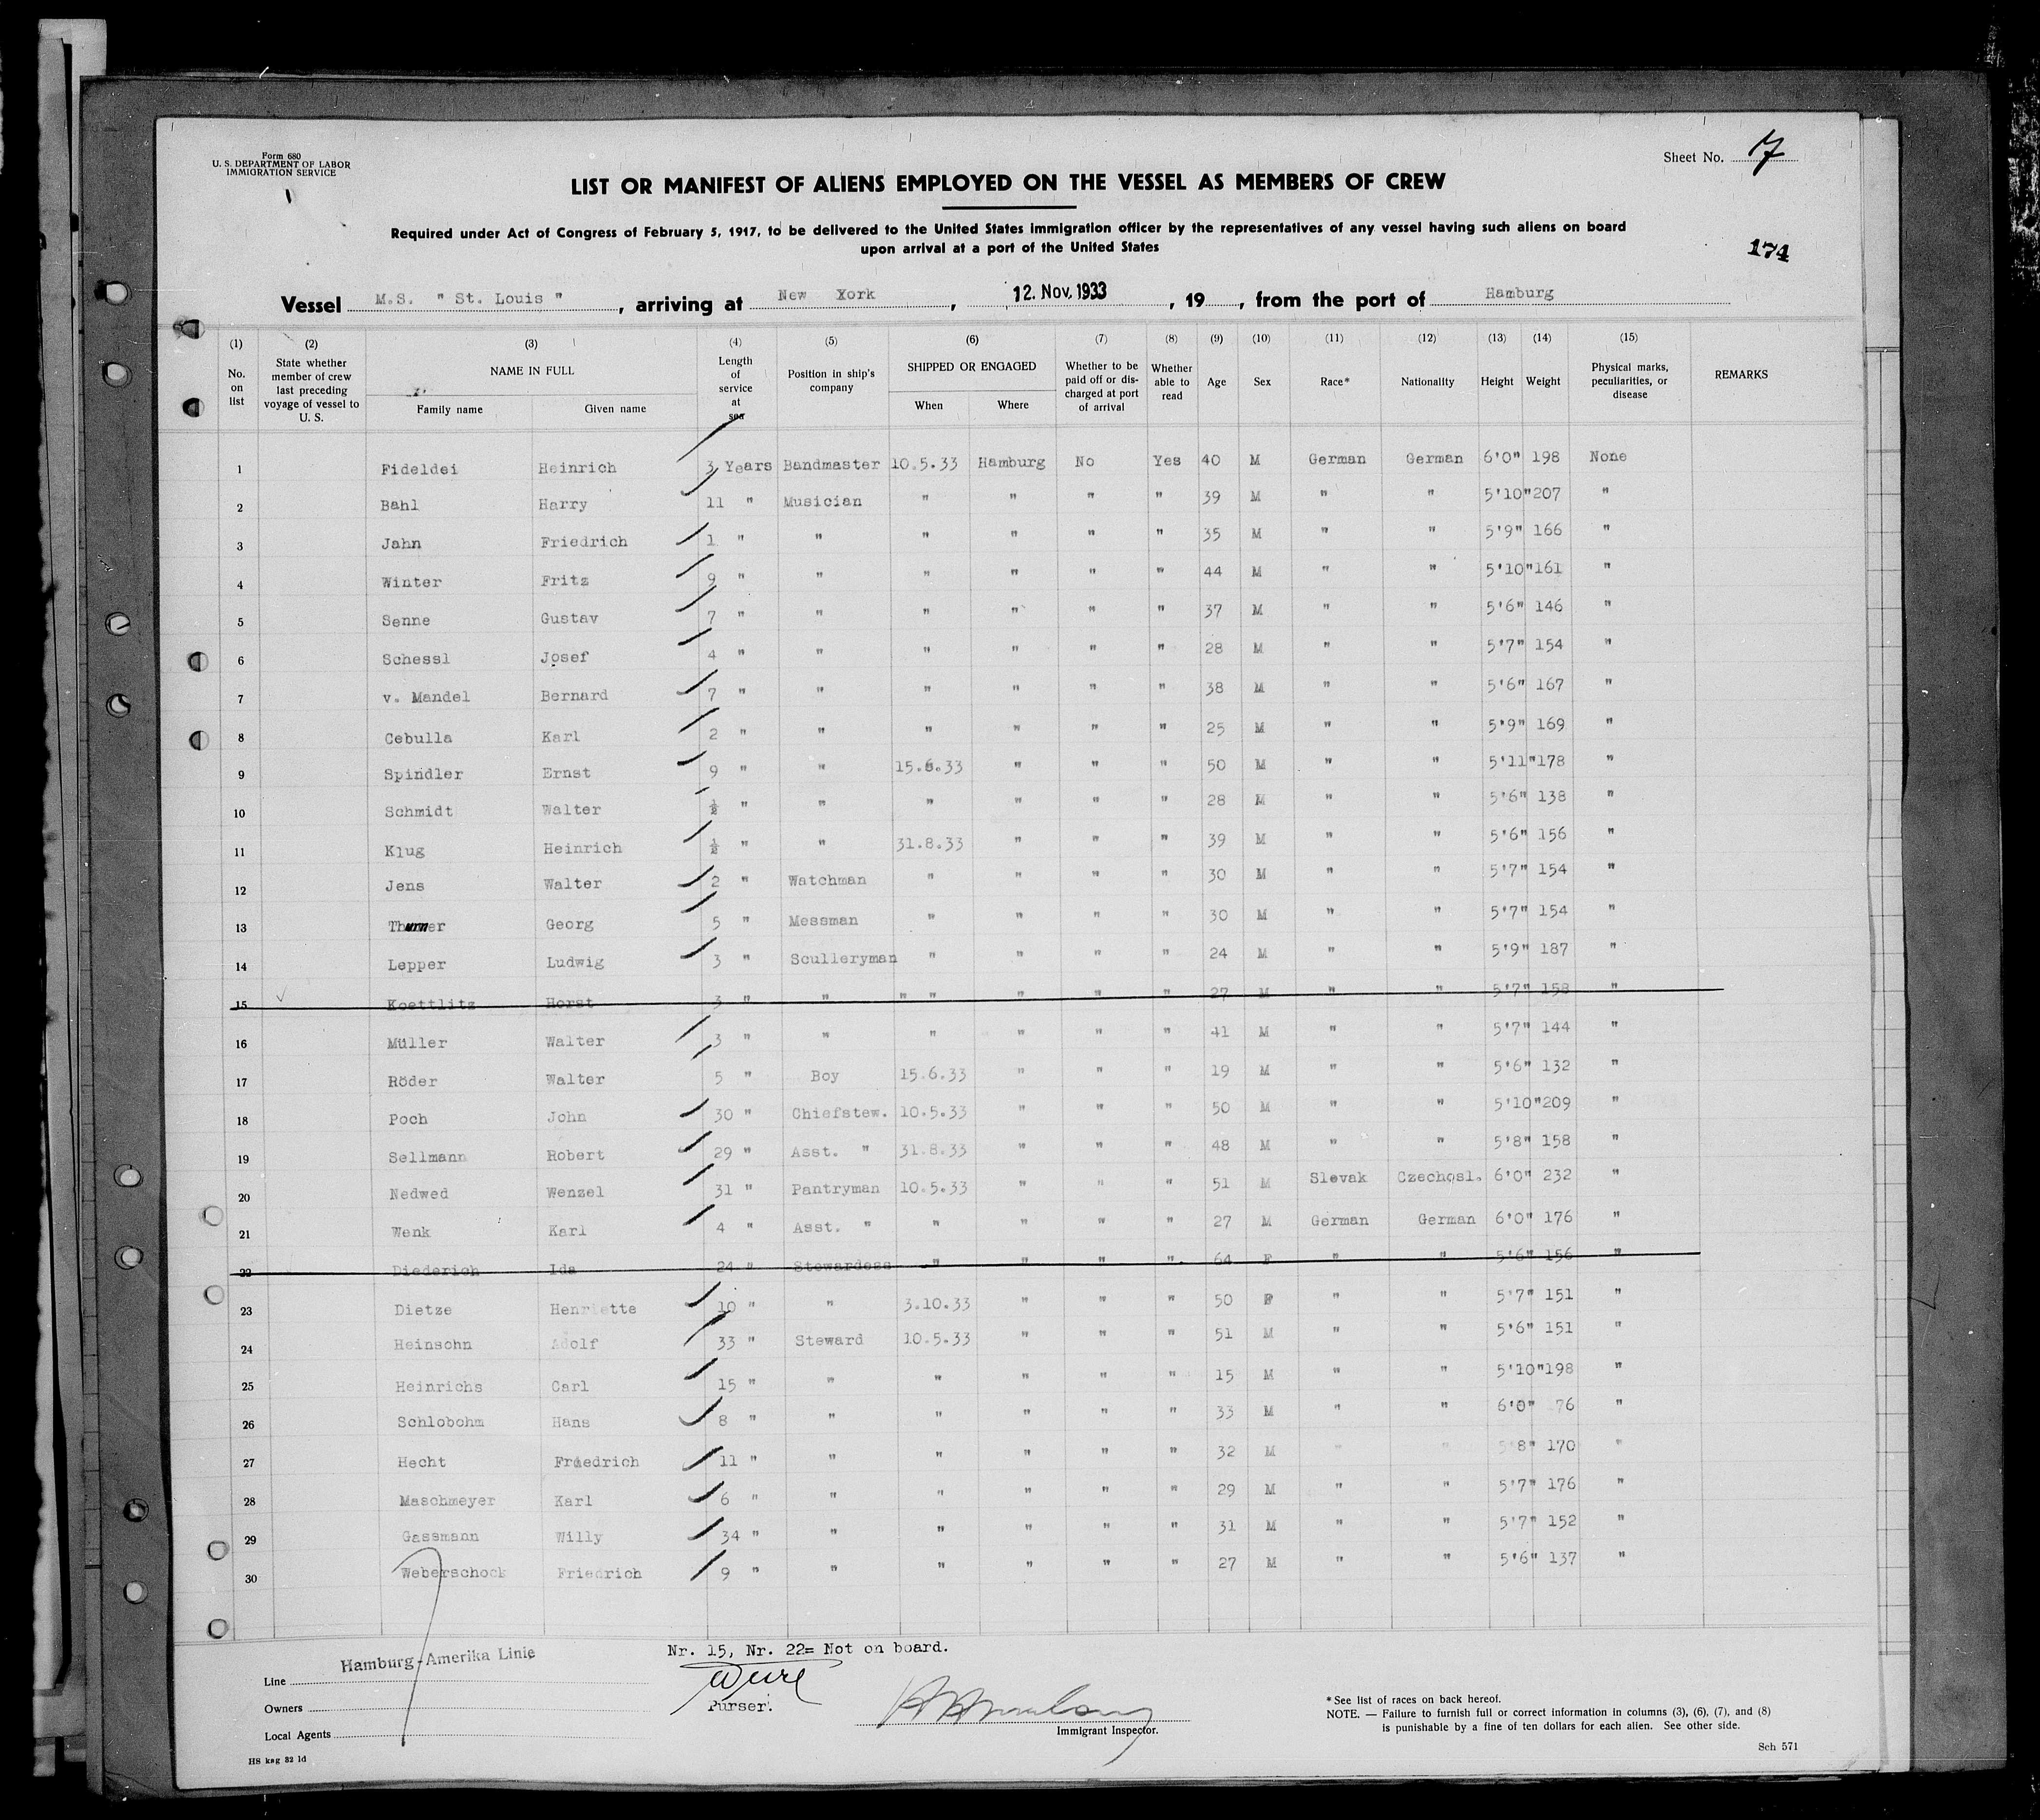 Form 680
U. S. DEPARTMENT OF LABOR
IMMIGRATION SERVICE
Sheet No. 7
LIST OR MANIFEST OF ALIENS EMPLOYED ON THE VESSEL AS MEMBERS OF CREW
Required under Act of Congress of February 5, 1917, to be delivered to the United States immigration officer by the representatives of any vessel having such aliens on board
upon arrival at a port of the United States
174
Vessel M.S. " St. Louis ", arriving at New York, 12. Nov. 1933, 19, from the port of Hamburg
(1) (2) (3) (4) (5) (6) (7) (8) (9) (10) (11) (12) (13) (14) (15)
No. on list State whether member of crew last preceding voyage of vessel to U. S. NAME IN FULL Family name Given name Length of service at sea Position in ship's company SHIPPED OR ENGAGED When Where Whether to be paid off or discharged at port of arrival Whether able to read Age Sex Race* Nationality Height Weight Physical marks, peculiarities, or disease REMARKS
1 Fideldei Heinrich 3 Years Bandmaster 10.5.33 Hamburg No Yes 40 M German German 6'0" 198 None
2 Bahl Harry 11 " Musician " " " " 39 M " " 5'10" 207 "
3 Jahn Friedrich 1 " " " " " " 35 M " " 5'9" 166 "
4 Winter Fritz 9 " " " " " " 44 M " " 5'10" 161 "
5 Senne Gustav 7 " " " " " " 37 M " " 5'6" 146 "
6 Schessl Josef 4 " " " " " " 28 M " " 5'7" 154 "
7 v. Mandel Bernard 7 " " " " " " 38 M " " 5'6" 167 "
8 Cebulla Karl 2 " " " " " " 25 M " " 5'9" 169 "
9 Spindler Ernst 9 " " 15.6.33 " " " 50 M " " 5'11" 178 "
10 Schmidt Walter ½ " " " " " " 28 M " " 5'6" 138 "
11 Klug Heinrich ½ " " 31.8.33 " " " 39 M " " 5'6" 156 "
12 Jens Walter 2 " Watchman " " " " 30 M " " 5'7" 154 "
13 Thurner Georg 5 " Messman " " " " 30 M " " 5'7" 154 "
14 Lepper Ludwig 3 " Sculleryman " " " " 24 M " " 5'9" 187 "
15 Koettlitz Horst 3 " " " " " " " 27 M " " 5'7" 158 "
16 Müller Walter 3 " " " " " " 41 M " " 5'7" 144 "
17 Röder Walter 5 " Boy 15.6.33 " " " 19 M " " 5'6" 132 "
18 Poch John 30 " Chiefstew. 10.5.33 " " " 50 M " " 5'10" 209 "
19 Sellmann Robert 29 " Asst. " 31.8.33 " " " 48 M " " 5'8" 158 "
20 Nedwed Wenzel 31 " Pantryman 10.5.33 " " " 51 M Slovak Czechosl. 6'0" 232 "
21 Wenk Karl 4 " Asst. " " " " " 27 M German German 6'0" 176 "
22 Diederich Ida 24 " Stewardess " " " " 64 F " " 5'6" 156 "
23 Dietze Henriette 10 " " 3.10.33 " " " 50 F " " 5'7" 151 "
24 Heinsohn Adolf 33 " Steward 10.5.33 " " " 51 M " " 5'6" 151 "
25 Heinrichs Carl 15 " " " " " " 15 M " " 5'10" 198 "
26 Schlobohm Hans 8 " " " " " " 33 M " " 6'0" 76 "
27 Hecht Friedrich 11 " " " " " " 32 M " " 5'8" 170 "
28 Maschmeyer Karl 6 " " " " " " 29 M " " 5'7" 176 "
29 Gassmann Willy 34 " " " " " " 31 M " " 5'7" 152 "
30 Weberschock Friedrich 9 " " " " " " 27 M " " 5'6" 137 "
Nr. 15, Nr. 22= Not on board.
Line Hamburg-Amerika Linie
Owners
Purser.
Local Agents
Immigrant Inspector.
* See list of races on back hereof.
NOTE. — Failure to furnish full or correct information in columns (3), (6), (7), and (8)
is punishable by a fine of ten dollars for each alien. See other side.
HS kag 32 1d
Sch 571